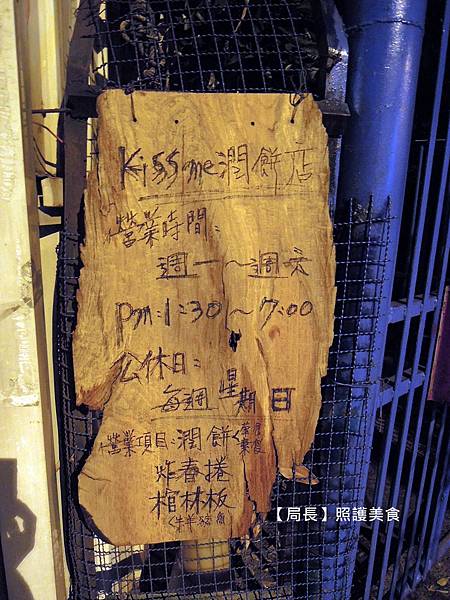 Kiss me潤餅店
營業時間：
週一～週六
Pm:1:30～7:00
公休日：
每週星期日
營業項目：潤餅<葷食 素食
炸春捲
棺林板
【局長】照護美食